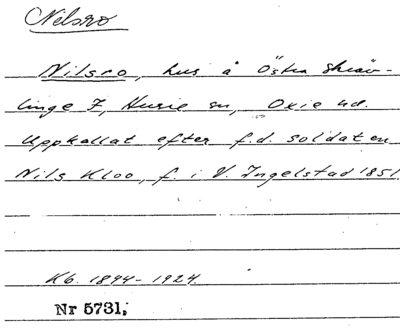 Nilsro
Nilsro, hus å Östra Skräv-
linge 7, Husie sn, Oxie hd.
Uppkallat efter f.d. soldaten
Nils Kloo, f. i V. Ingelstad 1851.
Kb. 1894-1924.
Nr 5731.